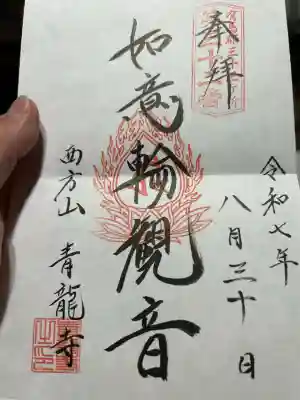 奉拝
令和七年
八月三十日
如意輪観音
西方山
青龍寺